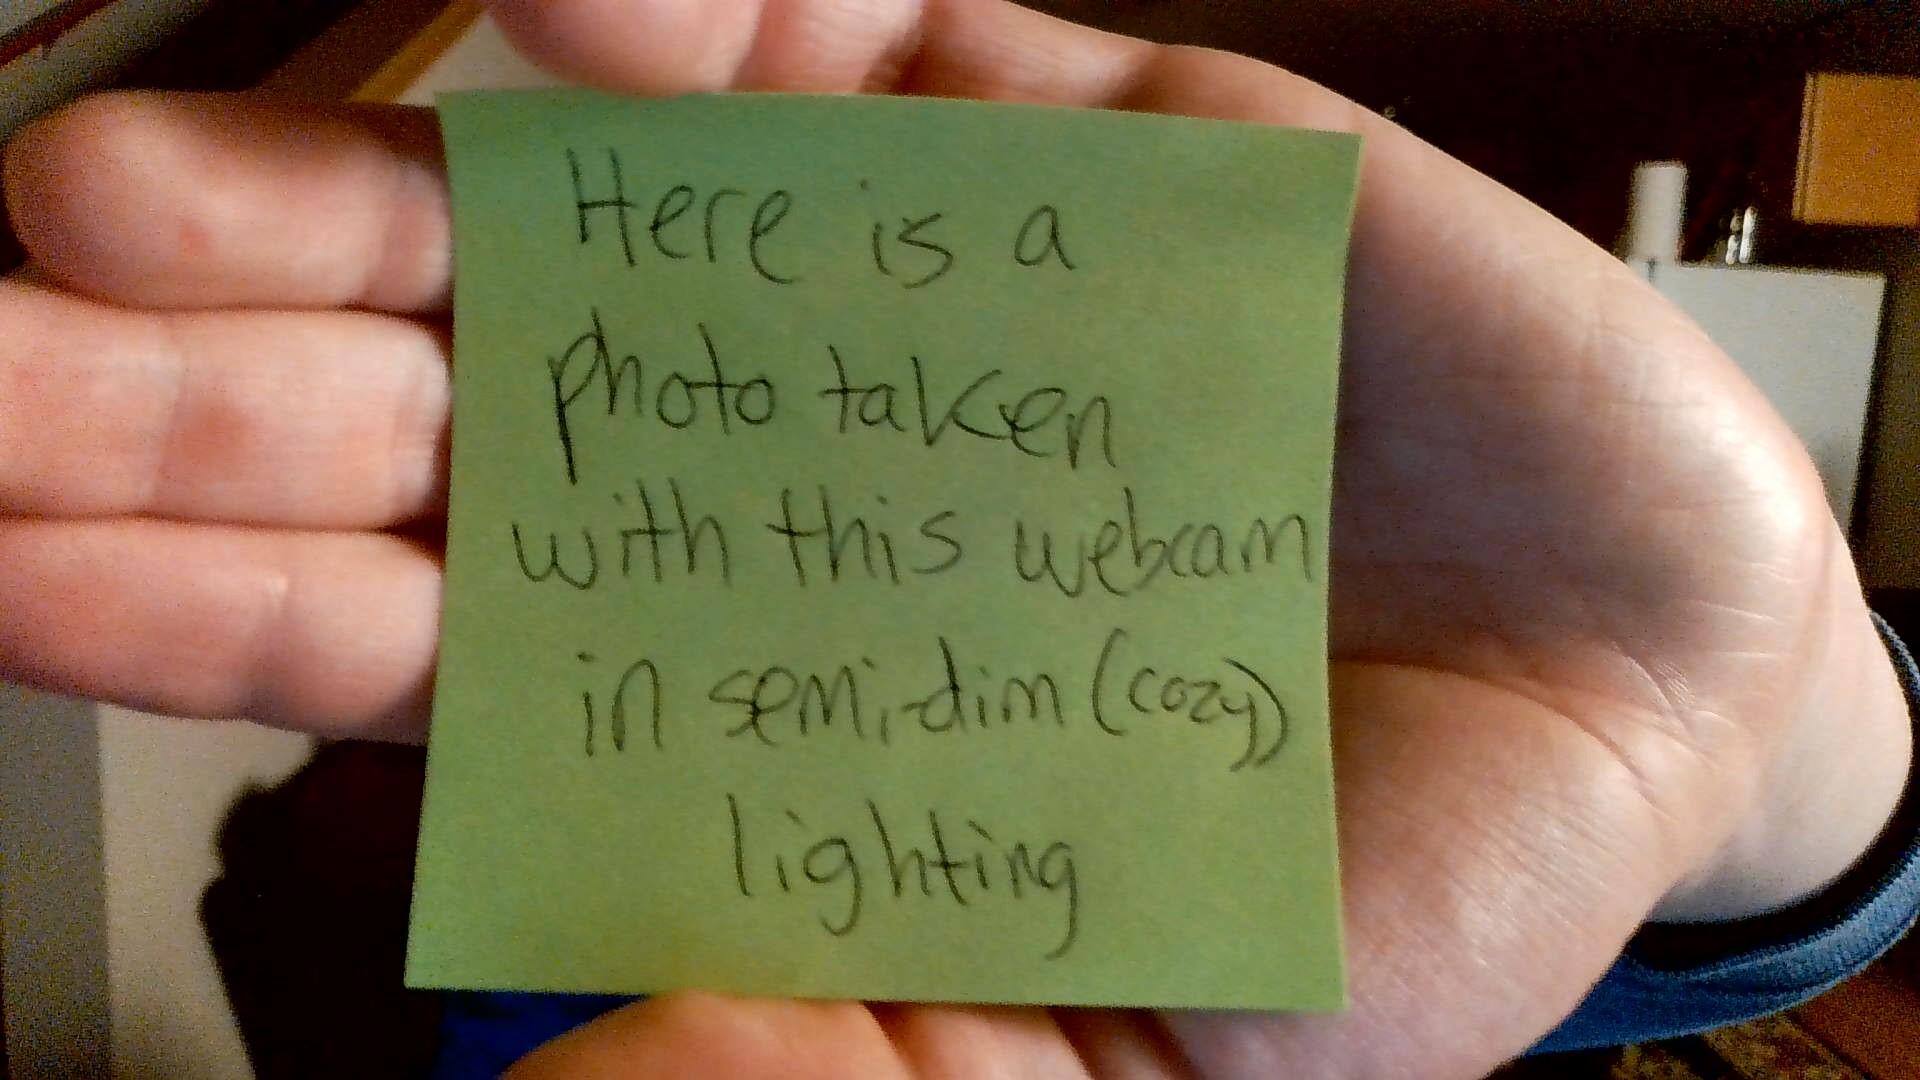 Here is a
photo taken
with this webcam
in semi-dim (cozy)
lighting